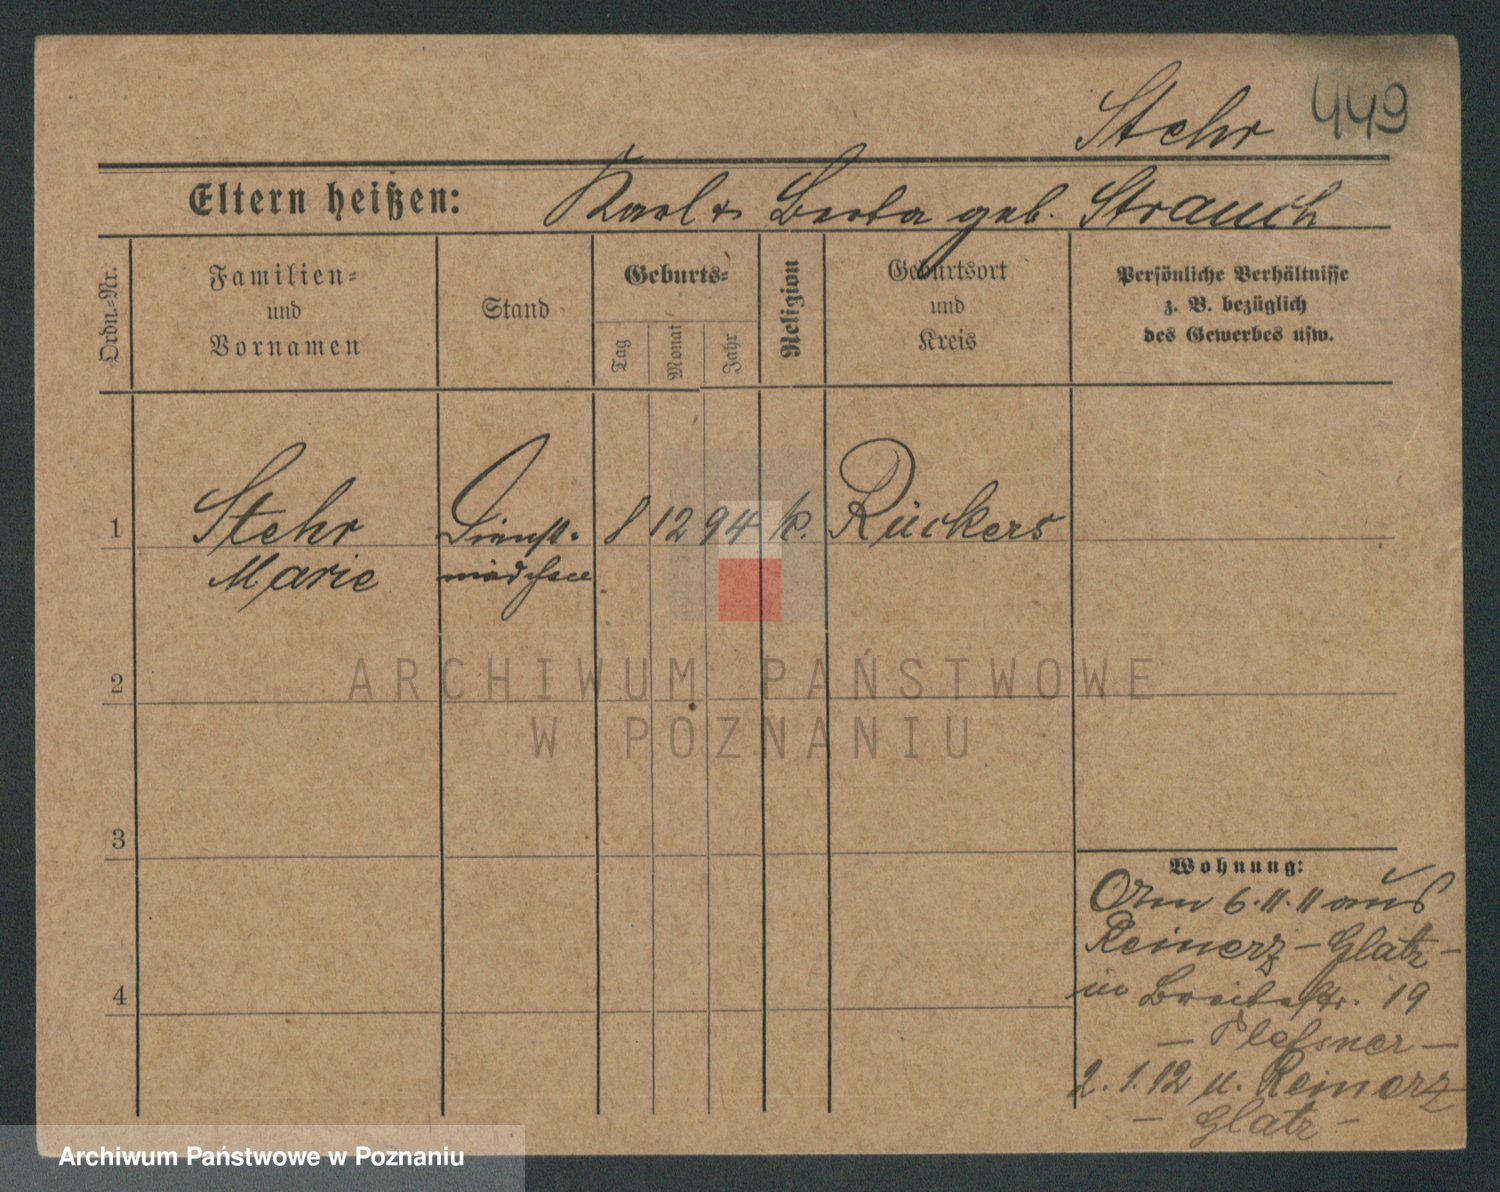 Stehr 449
Eltern heißen: Karl & Berta geb. Strauch
Ordn.-Nr.
Familien-
und
Vornamen
Stand
Geburts-
Tag
Monat
Jahr
Religion
Geburtsort
und
Kreis
Persönliche Verhältnisse
z. B. bezüglich
des Gewerbes usw.
1 Stehr Dienst- 8 12 94 k. Rückers
Marie mädchen
2
3
4
Wohnung:
6.11.11 aus
Reinerz - Glatz -
in Breitestr. 19
- Plessner -
2.1.12 n. Reinerz
- Glatz -
ARCHIWUM PAŃSTWOWE
W POZNANIU
Archiwum Państwowe w Poznaniu